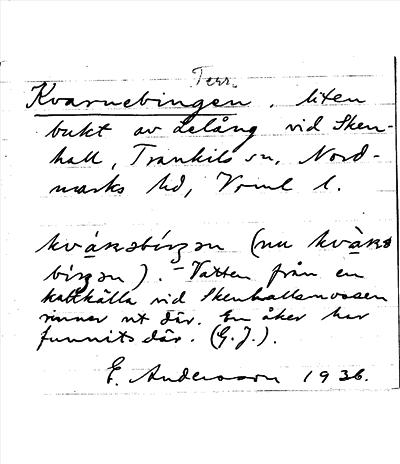 Terr.
Kvarnebingen, liten
bukt av Lelång vid Sken-
hall, Trankils sn, Nord-
marks hd, Vrml l.
kvànəbíŋən (nu kvàn
bíŋən). - Vatten från en
kallkälla vid Skenhallsmossen
rinner ut där. En åker har
funnits där. (G.J.).
E. Andersson 1936.